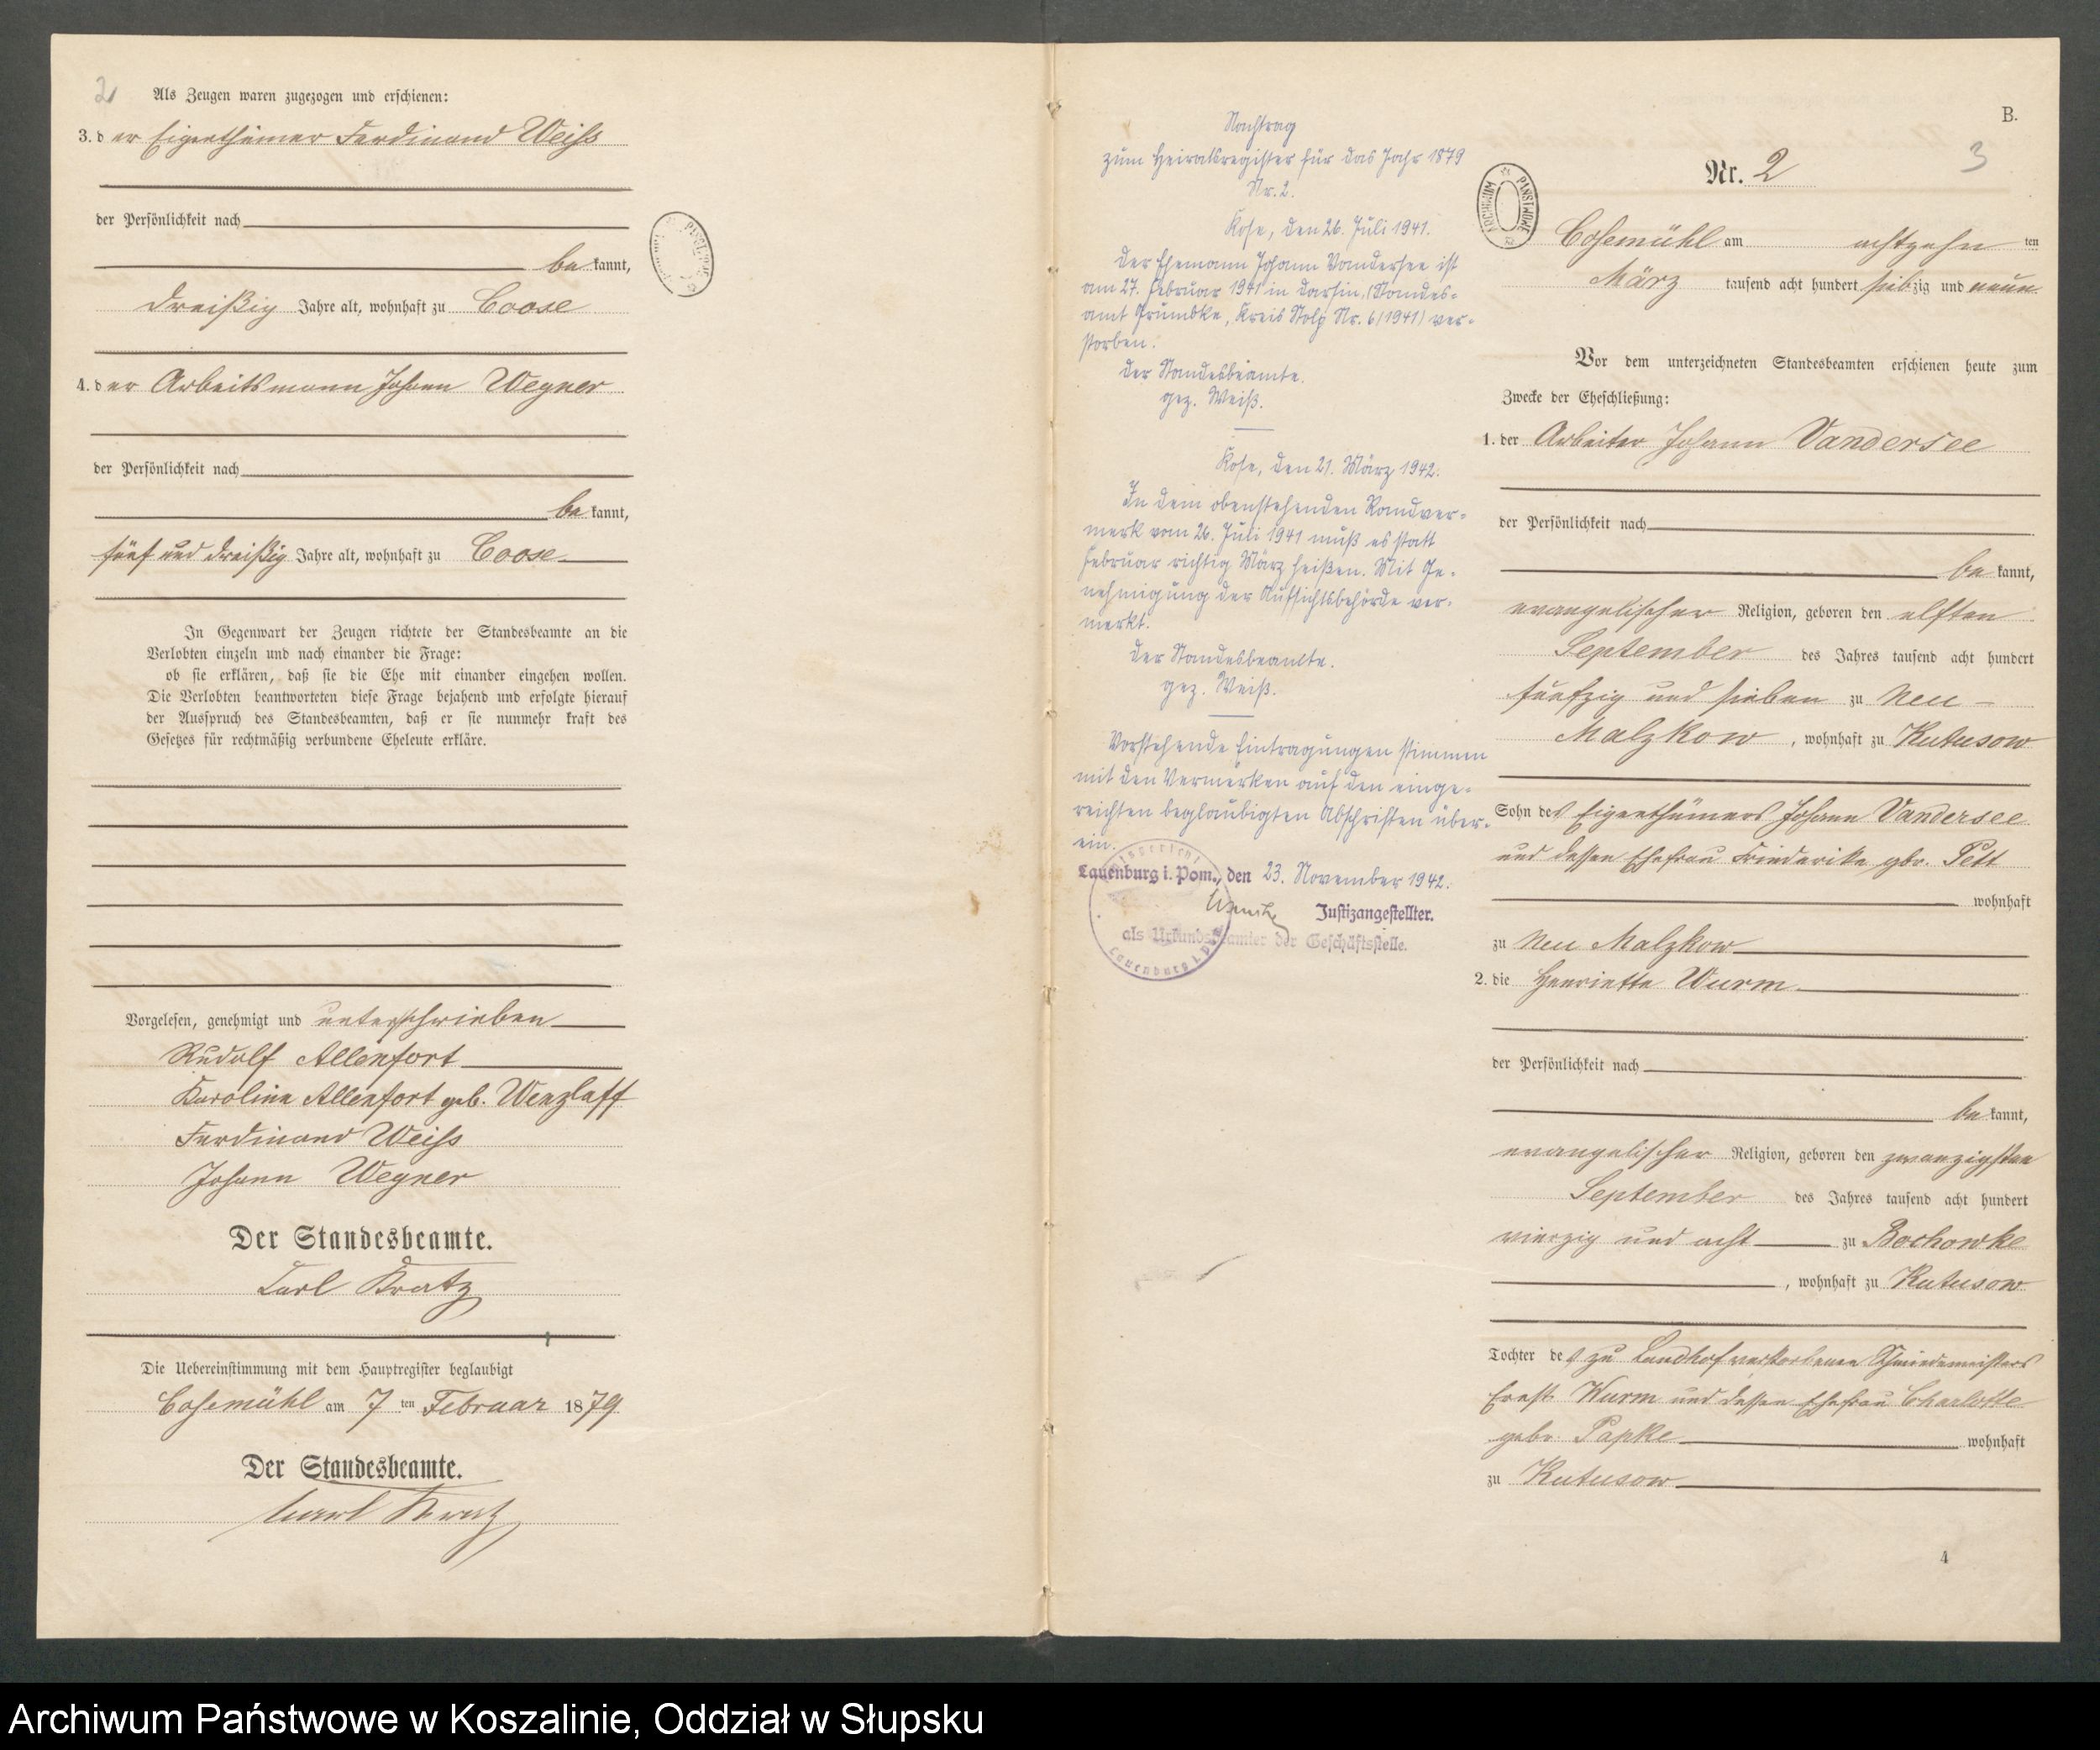 2
Als Zeugen waren zugezogen und erschienen:
3. der Eigenthümer Ferdinand Weiss
der Persönlichkeit nach
bekannt,
dreißig Jahre alt, wohnhaft zu Coose
4. der Arbeitsmann Johann Wegner
der Persönlichkeit nach
bekannt,
fünf und dreißig Jahre alt, wohnhaft zu Coose
In Gegenwart der Zeugen richtete der Standesbeamte an die
Verlobten einzeln und nach einander die Frage:
ob sie erklären, daß sie die Ehe mit einander eingehen wollen.
Die Verlobten beantworteten diese Frage bejahend und erfolgte hierauf
der Ausspruch des Standesbeamten, daß er sie nunmehr kraft des
Gesetzes für rechtmäßig verbundene Eheleute erkläre.
Vorgelesen, genehmigt und unterschrieben
Rudolf Allenfort
Karoline Allenfort geb. Wenzlaff
Ferdinand Weiss
Johann Wegner
Der Standesbeamte.
Carl Kratz
Die Uebereinstimmung mit dem Hauptregister beglaubigt
Cosemühl am 7 ten Februar 1879
Der Standesbeamte.
Carl Kratz
Nachtrag
zum Heiratsregister für das Jahr 1879
Nr. 2.
Kose, den 26. Juli 1941.
Der Ehemann Johann Vandersee ist
am 27. Februar 1941 in Darsin, (Standes-
amt Grumbke, Kreis Stolp Nr. 6/1941) ver-
storben.
Der Standesbeamte.
gez. Weiß.
Kose, den 21. März 1942.
In dem obenstehenden Randver-
merk vom 26. Juli 1941 muß es statt
Februar richtig März heißen. Mit Ge-
nehmigung der Aufsichtsbehörde ver-
merkt.
Der Standesbeamte.
gez. Weiß.
Vorstehende Eintragungen stimmen
mit den Vermerken auf den einge-
reichten beglaubigten Abschriften über-
ein.
Lauenburg i. Pom., den 23. November 1942.
Justizangestellter.
als Urkundsbeamter der Geschäftsstelle.
Lauenburg i. Pom
ARCHIWUM PAŃSTWOWE
B.
3
Nr. 2
Cosemühl am achtzehn ten
März tausend acht hundert siebzig und neun
Vor dem unterzeichneten Standesbeamten erschienen heute zum
Zwecke der Eheschließung:
1. der Arbeiter Johann Vandersee
der Persönlichkeit nach
bekannt,
evangelischer Religion, geboren den elften
September des Jahres tausend acht hundert
fünfzig und sieben zu Neu-
Malzkow, wohnhaft zu Kutusow
Sohn des Eigenthümers Johann Vandersee
und dessen Ehefrau Friederike gbr. Pett
wohnhaft
zu Neu Malzkow
2. die Henriette Wurm
der Persönlichkeit nach
bekannt,
evangelischer Religion, geboren den zwanzigsten
September des Jahres tausend acht hundert
vierzig und acht zu Bochowke
, wohnhaft zu Kutusow
Tochter des zu Landhof verstorbenen Schmiedemeisters
Ernst Wurm und dessen Ehefrau Charlotte
gebr. Papke wohnhaft
zu Kutusow
4
Archiwum Państwowe w Koszalinie, Oddział w Słupsku